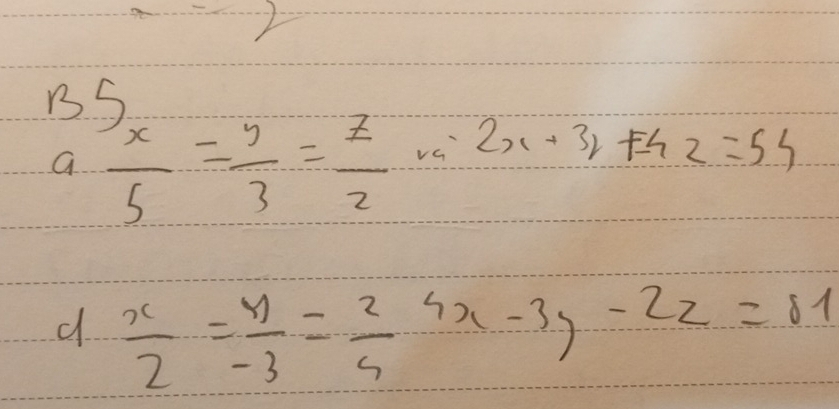 B5
a x/5 = y/3 = z/2 và 2x + 3y + 4z = 54
d x/2 = y/-3 = z/4 4x - 3y - 2z = 81